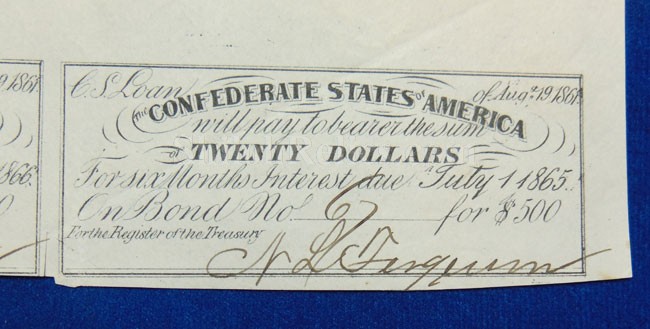 9 1861.
866.
0
C.S. Loan of Aug. 19 1861.
The CONFEDERATE STATES of AMERICA
will pay to bearer the sum
of TWENTY DOLLARS
For six Months Interest due July 1 1865.
On Bond No. 6 for $500
For the Register of the Treasury
N L Ferguson